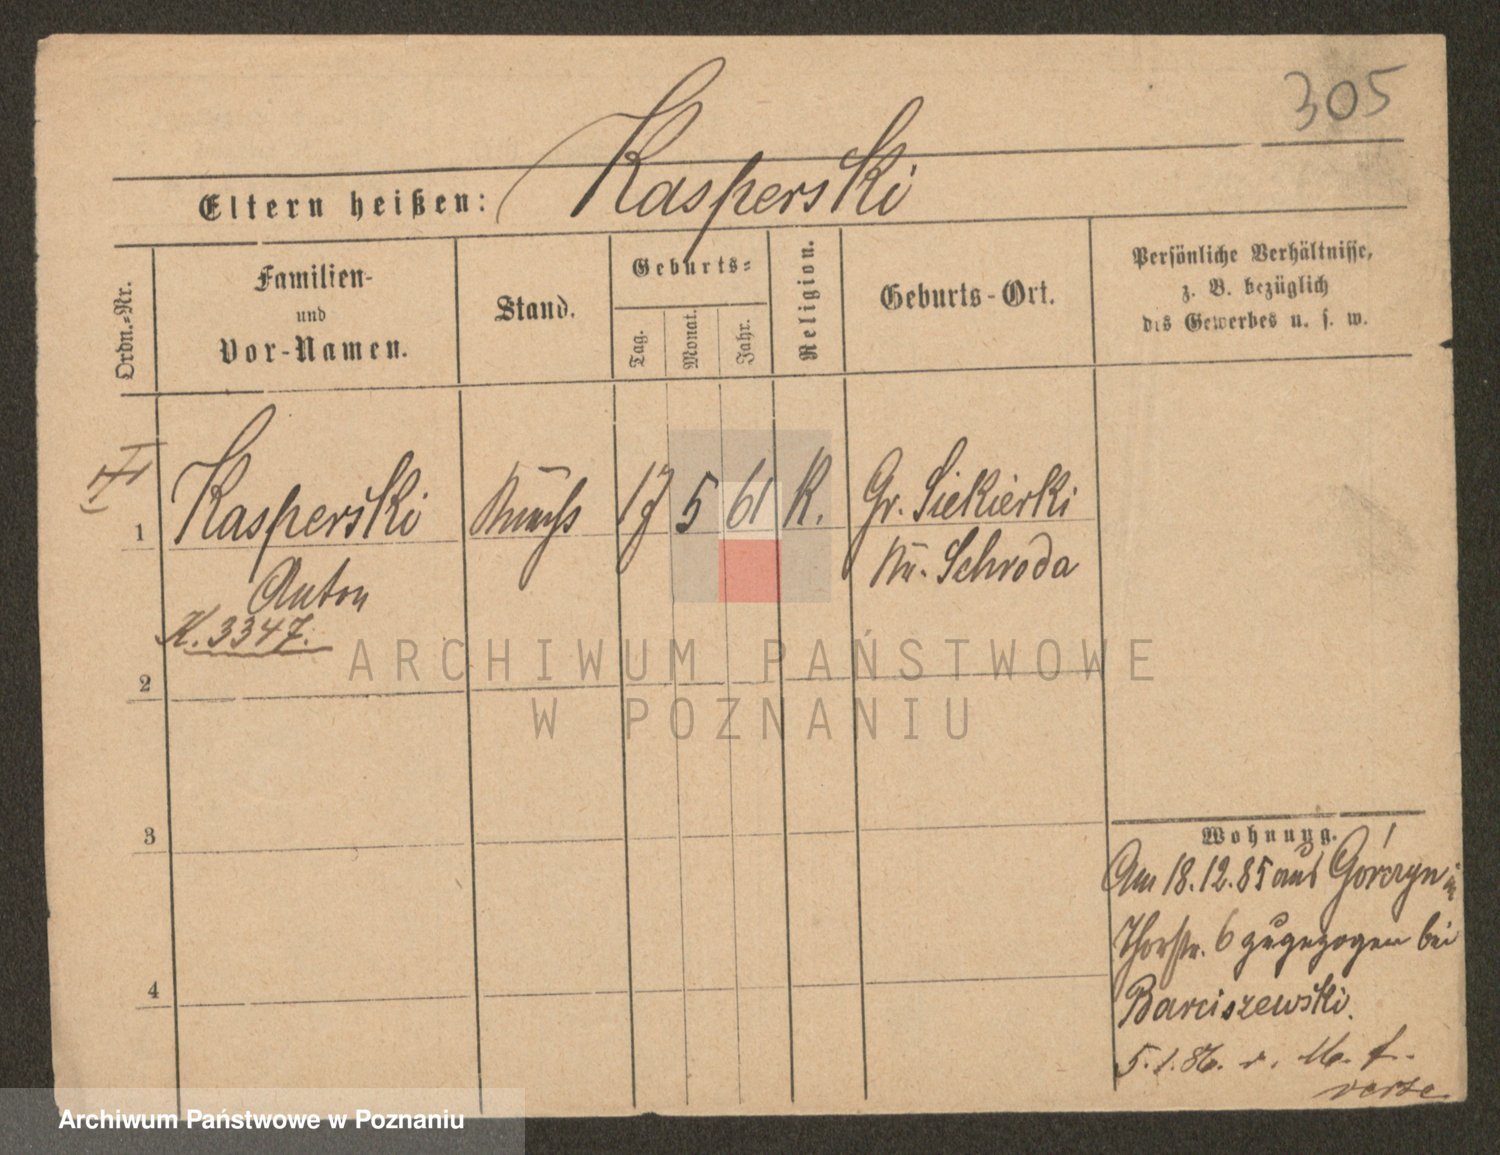 305
Eltern heißen: Kasperski
Ordn.-Nr.
Familien-
und
Vor-Namen.
Stand.
Geburts-
Tag.
Monat.
Jahr.
Religion.
Geburts-Ort.
Persönliche Verhältnisse,
z. B. bezüglich
des Gewerbes u. s. w.
1 Kasperski 17 5 61 K. Gr. Siekierki
Anton Kr. Schroda
K. 3347.
2
3
4
Wohnung.
Am 18.12.85 aus Górczyn in
Thorstr. 6 zugezogen bei
Barciszewski.
5.1.86. v.
verte
ARCHIWUM PAŃSTWOWE
W POZNANIU
Archiwum Państwowe w Poznaniu